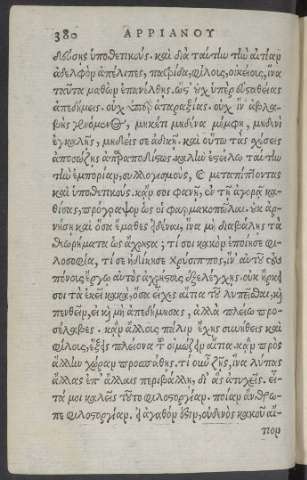 380 ΑΡΡΙΑΝΟΥ
διδούσης ὑποθετικούς. καὶ διὰ ταύτην τὴν αἰτίαν
ἀδελφὸν ἀπέλιπες, πατρίδα, φίλους, οἰκείους, ἵνα
ταῦτα μαθὼν ἐπανέλθῃς. ὥστ' οὐχ ὑπὲρ εὐσταθείας
ἀπεδήμεις. οὐχ ὑπὲρ ἀταραξίας. οὐχ ἵν' ἀβλα-
βὴς γενόμενος, μηκέτι μηδένα μέμφῃ, μηδενὶ
ἐγκαλῇς, μηδείς σε ἀδικῇ. καὶ οὕτω τὰς σχέσεις
ἀποσώζῃς ἀπαραποδίστως; καλὴν ἐστείλω ταύτην
τὴν ἐμπορίαν, συλλογισμοὺς, καὶ μεταπίπτοντας
καὶ ὑποθετικούς. κἄν σοι φανῇ, ἐν τῇ ἀγορᾷ κα-
θίσας, πρόγραψον ὡς οἱ φαρμακοπῶλαι. οὐκ ἀρ-
νήσῃ καὶ ὅσα ἔμαθες εἰδέναι, ἵνα μὴ διαβάλῃς τὰ
θεωρήματα ὡς ἄχρηστα; τί σοι κακὸν ἐποίησε φι-
λοσοφία, τί σε ἠδίκησε Χρύσιππος, ἵν' αὐτοῦ τοὺς
πόνους ἔργῳ αὐτὸς ἀχρήστους ἐξελέγχῃς. οὐκ ἤρκει
σοι τὰ ἐκεῖ κακὰ, ὅσα εἶχες αἴτια τοῦ λυπεῖσθαι, καὶ
πενθεῖν, εἰ καὶ μὴ ἀπεδήμησας, ἀλλὰ πλείω προ-
σέλαβες. κἂν ἄλλους πάλιν ἔχῃς συνήθεις καὶ
φίλους, ἕξεις πλείονα τοῦ οἰμώζειν αἴτια. κἂν πρὸς
ἄλλην χώραν προσπαθῇς. τί οὖν ζῇς, ἵνα λύπας
ἄλλας ἐπ' ἄλλαις περιβάλλῃ, δι' ἃς ἀτυχεῖς. εἶ-
τά μοι καλεῖς τοῦτο φιλοστοργίαν. ποίαν ἄνθρω-
πε φιλοστοργίαν. εἰ ἀγαθόν ἐστιν, οὐδενὸς κακοῦ αἴ-
τιον